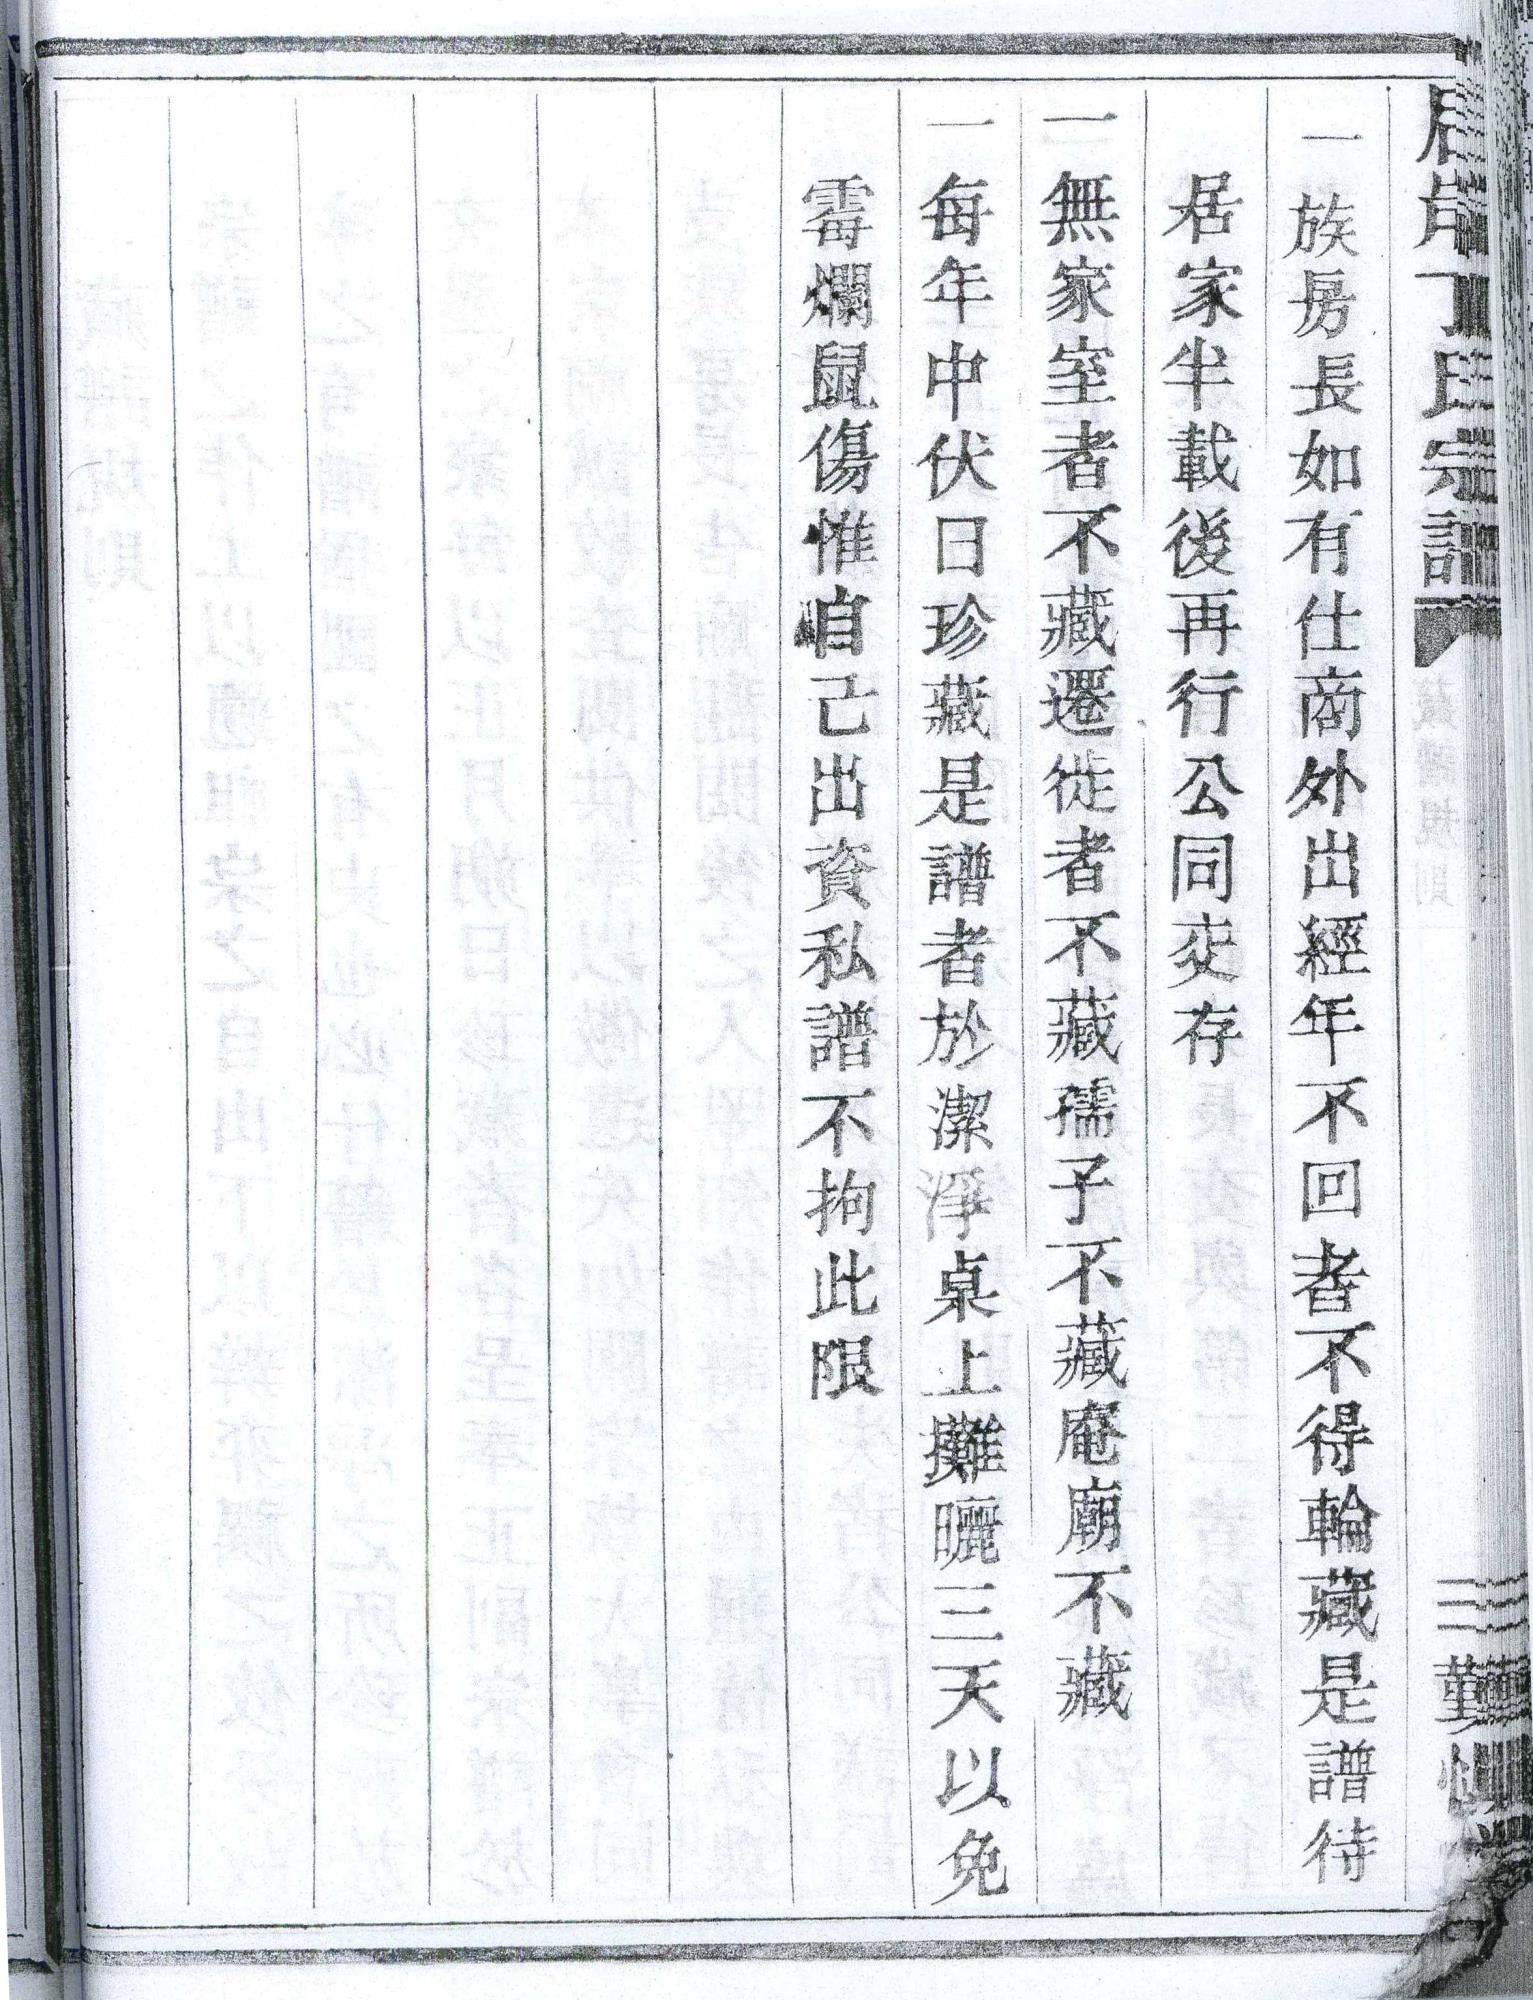 丁氏宗譜
藏譜規則
三
一族房長如有仕商外出經年不回者不得輪藏是譜待
居家半載後再行公同交存
一無家室者不藏遷徙者不藏孺子不藏庵廟不藏
一每年中伏日珍藏是譜者於潔淨桌上攤曬三天以免
霉爛鼠傷惟自己出資私譜不拘此限